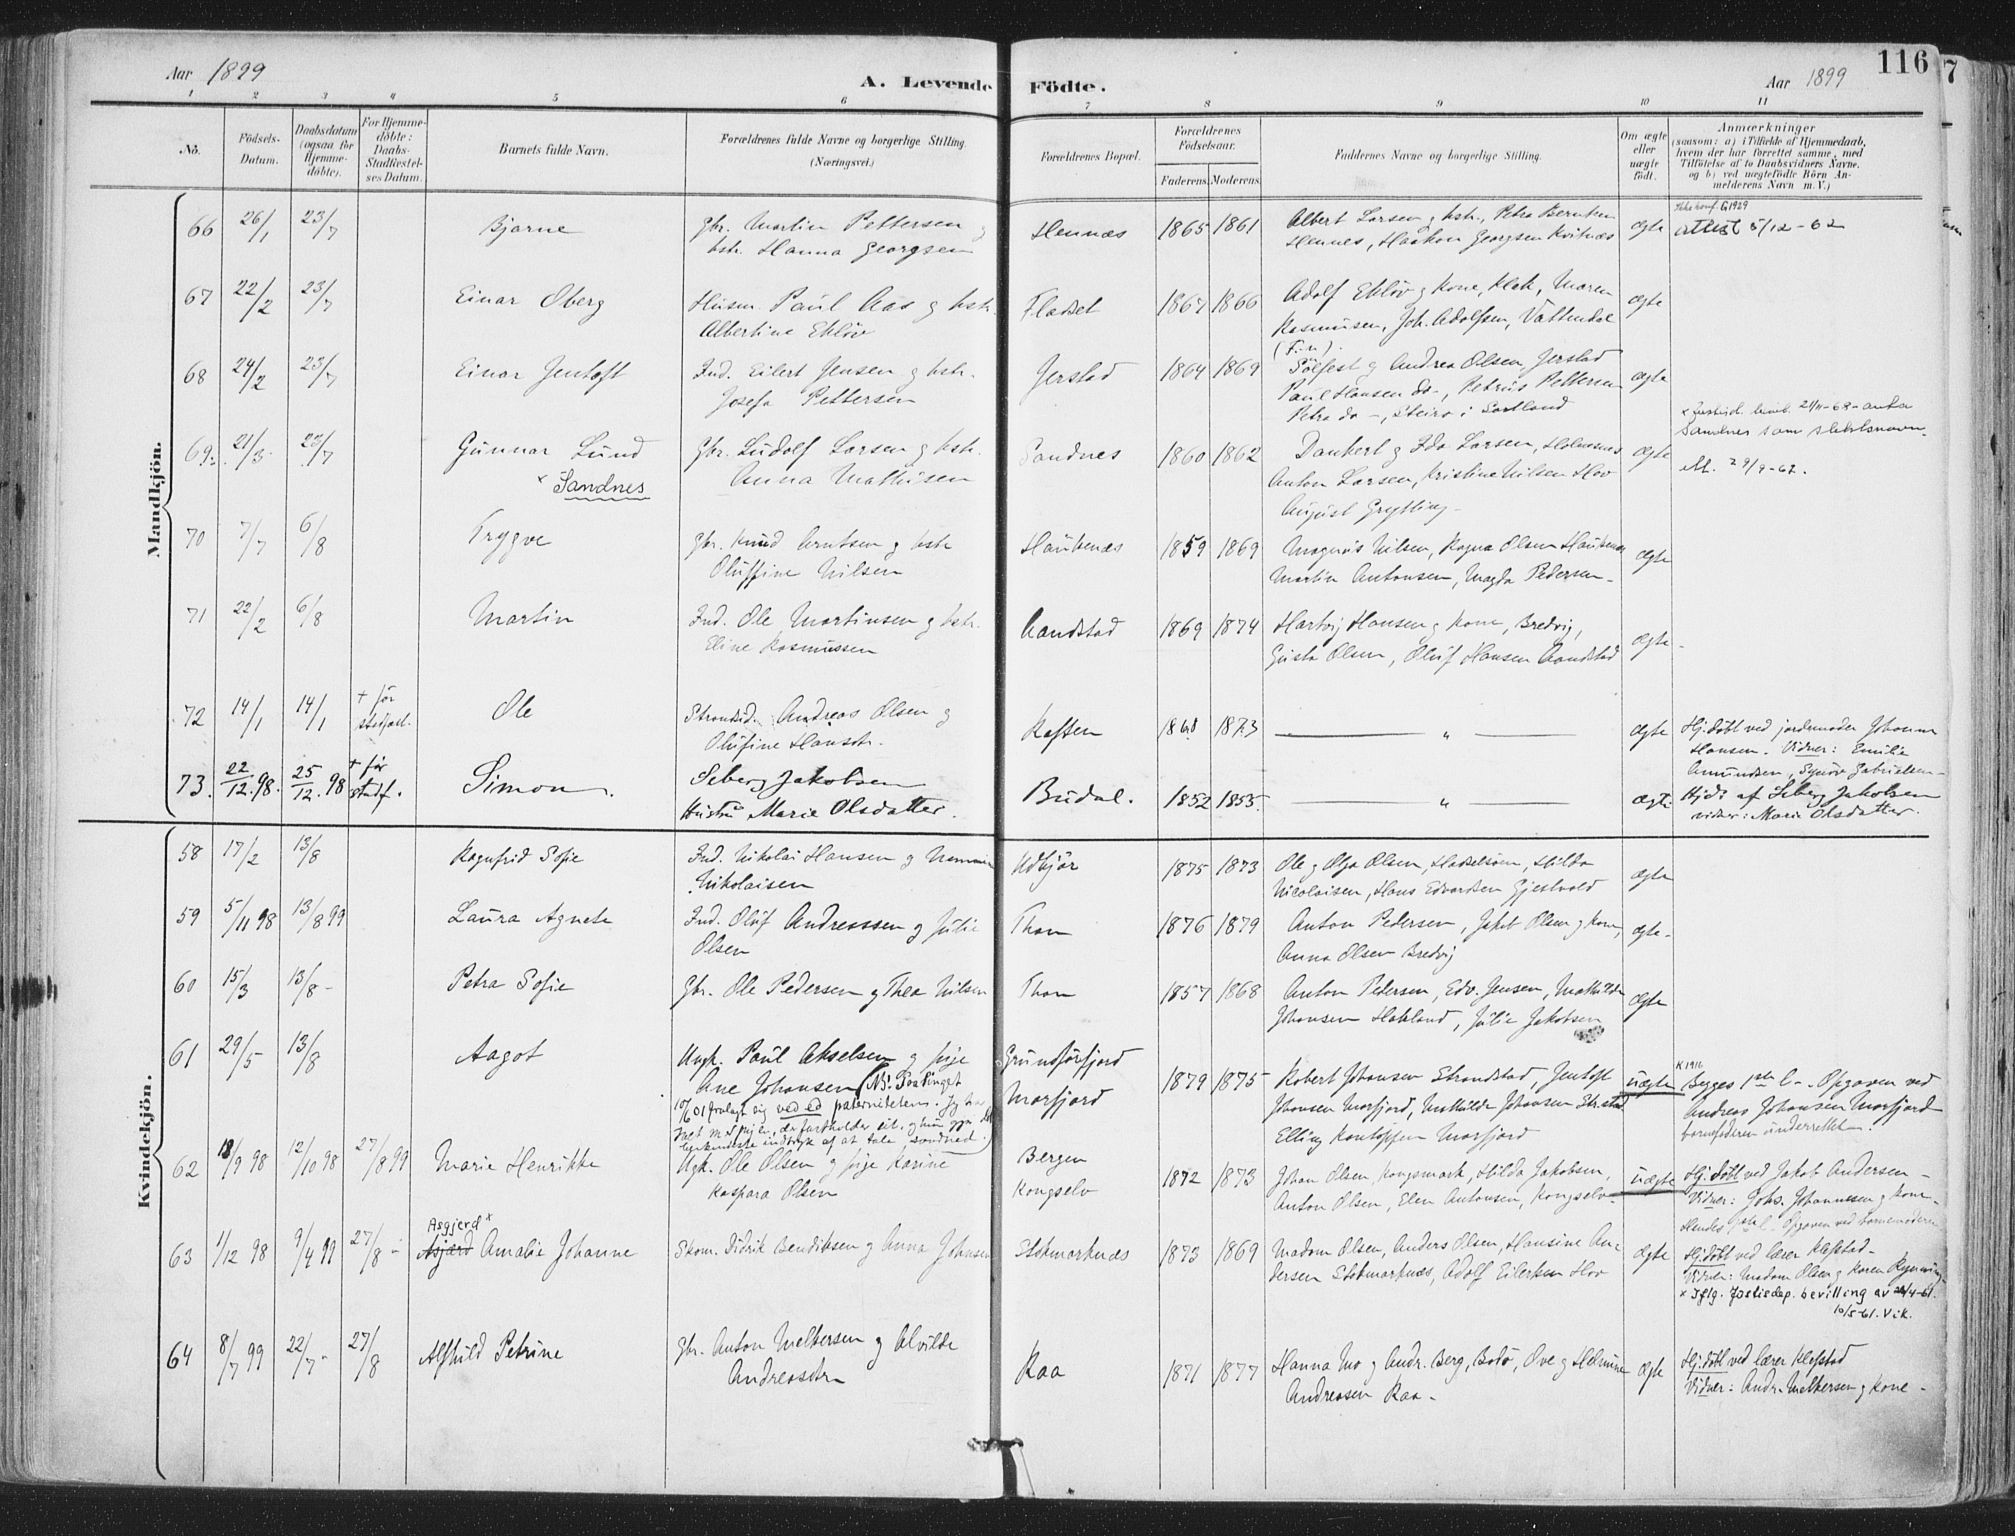 116
Aar 1899
A. Levende Födte.
Aar 1899
1 2 3 4 5 6 7 8 9 10 11
No.
Födsels-
Datum.
Daabsdatum
(ogsaa for
Hjemme-
döbte).
For Hjemme-
döbte:
Daabs-
Stadfæstel-
ses Datum.
Barnets fulde Navn.
Forældrenes fulde Navne og borgerlige Stilling.
(Næringsvei.)
Forældrenes Bopæl.
Forældrenes
Födselsaar.
Faderens. Moderens.
Faddernes Navne og borgerlige Stilling.
Om ægte
eller
uægte
födt.
Anmærkninger
(saasom: a) i Tilfælde af Hjemmedaab,
hvem der har forrettet samme, med
Tilföielse af to Daabsvidners Navne.
og b) ved uægtefödte Börn An-
melderens Navn m.V.)
Mandkjön.
66 26/1 23/7 Bjarne Gbr. Martin Pettersen og
hstr. Hanna Georgsen
Hennæs 1865 1861 Albert Larsen og hstr., Petra Berntsen
Hennes, Haakon Georgsen Kvitnæs
ægte
G 1929
attest 5/12-62
67 22/2 23/7 Einar Oberg Husm. Paul Aas og hstr.
Albertine Eklöv
Fladset 1867 1866 Adolf Eklöv og kone, Maren
Rasmussen, Joh. Adolfsen, Vattendal
ægte
68 24/2 23/7 Einar Jentoft Ind. Eilert Jensen og hstr.
Josefa Pettersen
Jerstad 1864 1869 Sölfest og Andrea Olsen, Jerstad
Paul Hansen do-, Petrus Pettersen
Petra do-, Steiro i Sortland
ægte
69 21/3 23/7 Gunnar Lund
x Sandnes
Gbr. Ludolf Larsen og hstr.
Anna Mathisen
Sandnes 1860 1862 Dankert og Ida Larsen, Holmsnes
Anton Larsen, Kristine Nilsen Hov
August Grytting
ægte
x 21/11-68- anta
Sandnes som slektsnavn.
Att. 29/9-62.
70 7/7 6/8 Trygve Gbr. Knud Arntsen og hstr
Oluffine Nilsen
Haukenæs 1859 1869 Magnus Nilsen, Ragna Olsen Haukenæs
Martin Antonsen, Magda Pedersen-
ægte
71 22/2 6/8 Martin Ind. Ole Martinsen og hstr.
Eline Rasmussen
Aandstad 1869 1874 Hartvig Hansen og kone, Bredvig,
Gusta Olsen, Oluf Hansen Aandstad
ægte-
72 14/1 14/1 + för
stadfæst.
Ole Strandsid. Andreas Olsen og
Olufine Hansdtr.
Raften 1868 1873 — " — ægte
Hj. döbt ved jordemoder Johanna
Hansen. Vidner: Emilie
Amundsen, Synöve Gabrielsen-
73. 22/12.98. 25/12.98 + för
stadf.
Simon. Seberg Jakobsen
Hustru Marie Olsdatter.
Budal. 1852 1855. — " — ægte
Hjdt af Seberg Jakobsen
vidner: Marie Olsdatter.
Kvindekjön.
58 17/2 13/8 Ragnfrid Sofie Ind. Nikolai Hansen og
Nikolaisen
Udkjör 1875 1873 Ole og Olga Olsen, Hadselöen, Hilda
Nicolaisen, Hans Edvardsen Gjestvold
ægte
59 5/11 98 13/8 99 Laura Agnete Ind. Oluf Andreassen og Julie
Olsen
Thon 1876 1879 Anton Pedersen, Jakob Olsen og kone,
Anna Olsen Bredvig
ægte-
60 15/3 13/8- Petra Sofie Gbr. Ole Pedersen og Thea Nilsen
Thon 1857 1868 Anton Pedersen, Edv. Jensen, Mathilde
Johansen Hakland, Julie Jakobsen
ægte
61 29/5 13/8 Aagot Ungk. Paul Akselsen og pige
Ane Johansen (NB! Paa tinget
10/6 01 fralagt sig ved ed paterniteten.
Grunsförfjord
Morfjord
1879 1875 Robert Johansen Strandstad, Jentoft
Johansen Morfjord, Mathilde Johansen Str.stad
Elling Kantoppen Morfjord
uægte
K 1916
Begges 1ste l-. Opgaven ved
Andreas Johansen Morfjord
barnefaderen underrettet.
62 18/9 98 12/10 98 27/8 99 Marie Henrikke Ugk. Ole Olsen og pige Karine
Kaspara Olsen
Bergen
Kongselv
1872 1873 Johan Olsen, Kongsmark, Hilda Jakobsen,
Anton Olsen, Elen Antonsen, Kongselv-
uægte
Hj. döbt ved Jakob Andersen-
Vidner: Johs. Johannessen og kone-
Hendes 1ste l- Opgaven ved barnemoderen
63 1/12 98 9/4 99 27/8 - Asgjerd x
Asjærd Amalie Johanne Skom. Didrik Bendiksen og Anna Johnsen
Stokmarknæs 1873 1869 Madam Olsen, Anders Olsen, Hansine An-
dersen Stokmarknæs, Adolf Eilertsen Hov
ægte
Hj. döbt ved lærer Klefstad-
Vidner: Madam Olsen og Karen Rynning-
x Iflg. Justisdep. bevilling av 24/4-61.
10/5-61. Vik.
64 8/7 99 22/7- 27/8 Alfhild Petrine Gbr. Anton Melkersen og Alvilde
Andreasdtr
Raa 1871 1877 Hanna Mo og Andr. Berg, Bodö, Ove og Helmine
Andreassen Raa-
ægte
Hj. döbt ved lærer Klefstad
Vidner: Andr. Melkersen og kone-